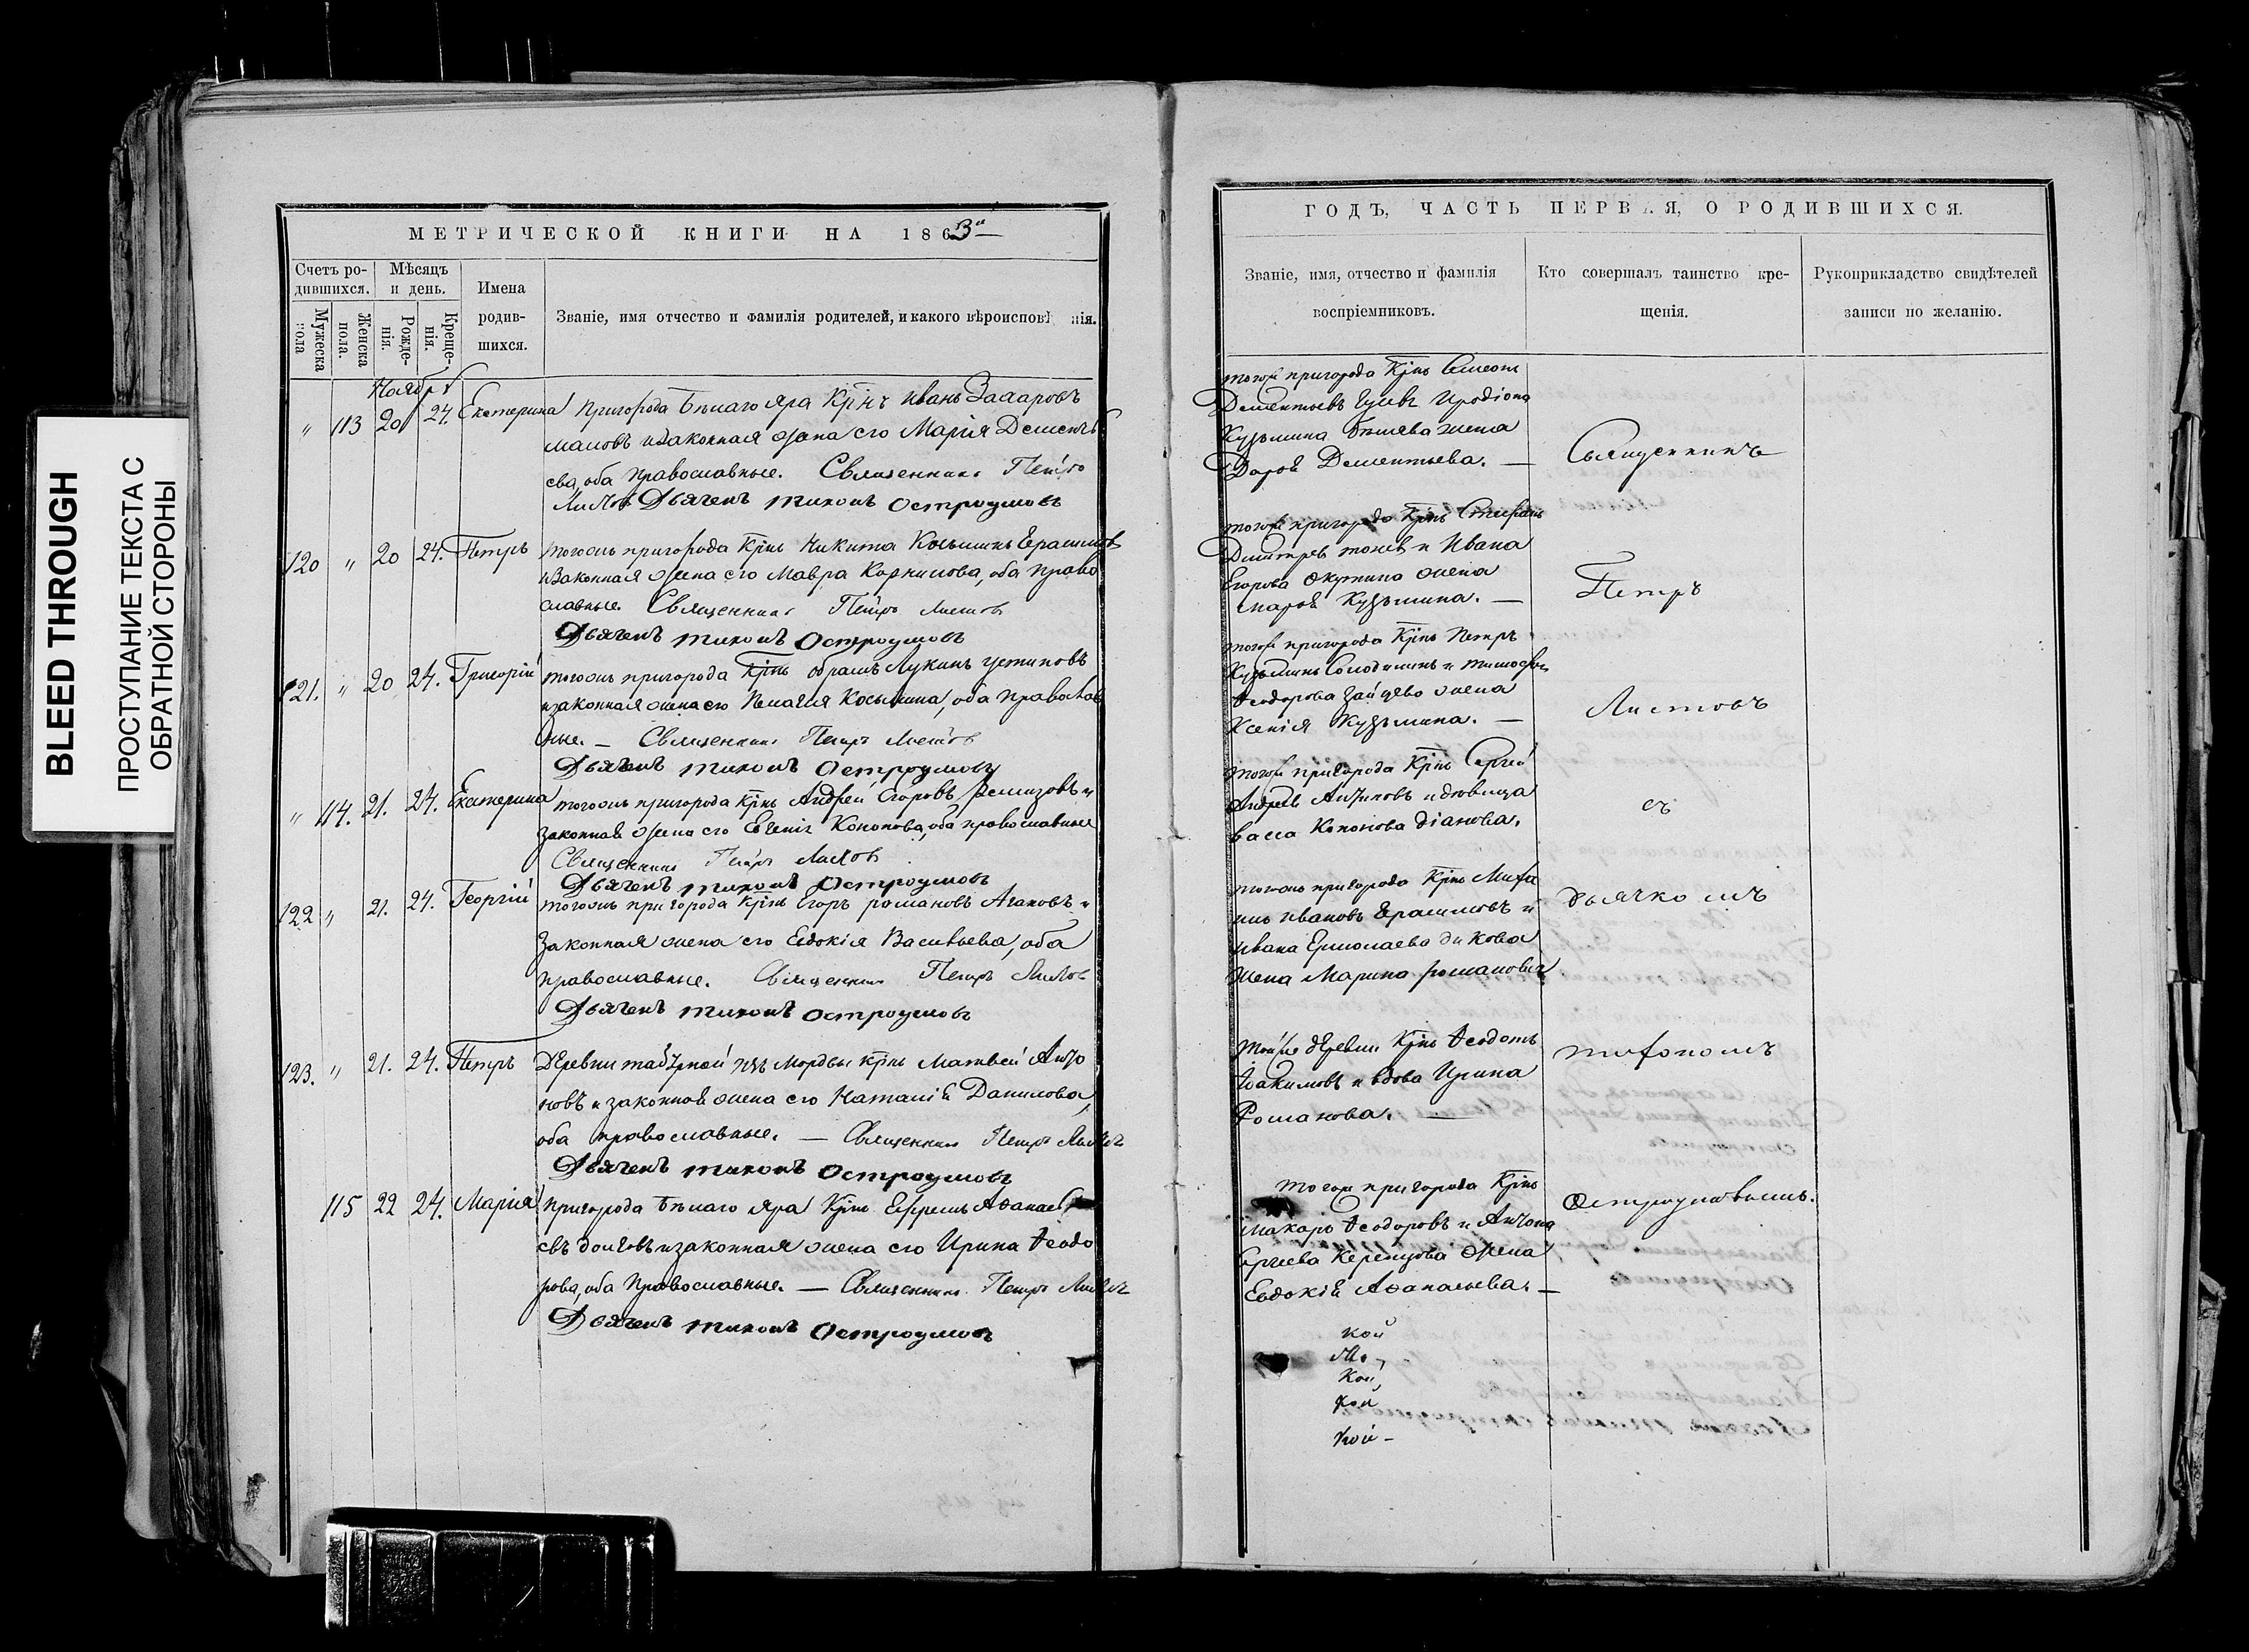 BLEED THROUGH
ПРОСТУПАНИЕ ТЕКСТА С
ОБРАТНОЙ СТОРОНЫ
МЕТРИЧЕСКОЙ КНИГИ НА 1863
Счетъ ро-
дившихся.
Мужеска
пола
Женска
пола.
Мѣсяцъ
и день.
Рожде-
нія.
Креще-
нія.
Имена
родив-
шихся.
Званіе, имя отчество и фамилія родителей, и какого вѣроисповѣ нія.
Ноябр
" 113 20 24. Екатерина Пригорода Бѣлаго Яра Крͯнъ Иванъ Захаровъ
законная жена его Марія Демент
ева, оба православные. Священникъ Петръ
Листовъ Дьячекъ Тихонъ Остроумовъ
120 " 20 24. Петръ тогожъ пригорода Крнъ Никита Косьминъ Ерасимовъ
и законная жена его Мавра Корнилова, оба право
славные. Священникъ Петръ Листовъ
Дьячекъ Тихонъ Остроумовъ
121. " 20 24. Григорій тогожъ пригорода Крнъ Абрамъ Лукинъ Устиновъ
и законная жена его Пелагея Косьмина, оба православ
ные. — Священникъ Петръ Листовъ
Дьячекъ Тихонъ Остроумовъ
" 114. 21. 24. Екатерина тогожъ пригорода Крнъ Андрей Егоровъ Ремизовъ и
законная жена его Евгенія Кононова, оба православные
Священникъ Петръ Листовъ
Дьячекъ Тихонъ Остроумовъ
122 " 21. 24. Георгій тогожъ пригорода Крнъ Егоръ Романовъ Агаковъ и
законная жена его Евдокія Васильева, оба
православные. Священникъ Петръ Листовъ
Дьячекъ Тихонъ Остроумовъ
123. " 21. 24. Петръ Деревни изъ Мордвы крнъ Матвей Анто
новъ и законная жена его Наталія Данилова,
оба православные. — Священникъ Петръ Листовъ
Дьячекъ Тихонъ Остроумовъ
115 22 24. Марія Пригорода Бѣлаго Яра Крнъ Ефремъ Аѳанась
евъ Долговъ и законная жена его Ирина Ѳеодо
рова, оба православные. — Священникъ Петръ Листовъ
Дьячекъ Тихонъ Остроумовъ
ГОДЪ, ЧАСТЬ ПЕРВАЯ, О РОДИВШИХСЯ.
Званіе, имя, отчество и фамилія
воспріемниковъ.
Кто совершалъ таинство кре-
щенія.
Рукоприкладство свидѣтелей
записи по желанію.
тогоже пригорода Крнъ Симеонъ
Дементьевъ Гусевъ Иродіона
Кузьмина Бѣляева жена
Дарья Дементьева. —
тогоже пригорода Крнъ Стефанъ
Димитревъ и Ивана
Егорова жена
Марья Кузьмина. —
тогоже пригорода Крнъ Петръ
Кузьминъ Солодилинъ и Тимофея
Ѳеодорова Зайцева жена
Ксенія Кузьмина. —
тогоже пригорода Крнъ Сергей
Андреевъ Антиповъ и дѣвица
Васса Кононова Діанова.
тогожъ пригорода Крнъ Миха
илъ Ивановъ Ерасимовъ и
Ивана Ермолаева Дикова
жена Марина Романова
тойже деревни Крнъ Ѳеодотъ
Іоакимовъ и вдова Ирина
Романова. —
тогоже пригорода Крнъ
Макаръ Ѳеодоровъ и Антона
Сергеева Керемцова жена
Евдокія Аѳанасьева. —
кой
кой
кой
кой -
Священникъ
Петръ
Листовъ
съ
дьячкомъ
Тихономъ
Остроумовымъ.